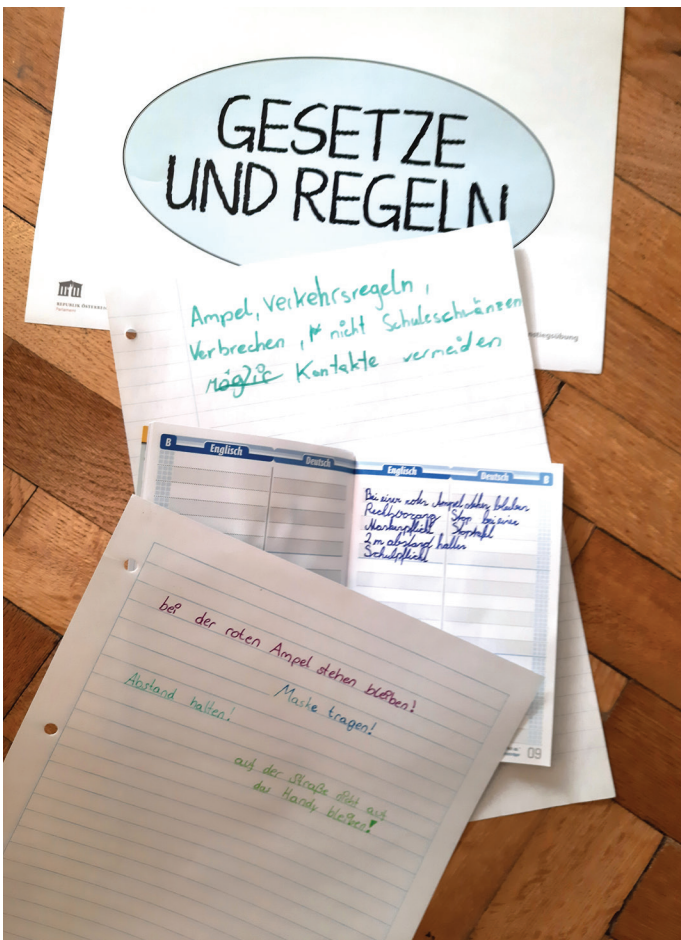 GESETZE
UND REGELN
REPUBLIK ÖSTERREICH
Parlament
Ampel, Verkehrsregeln,
Verbrechen, nicht Schuleschwänzen
möglic Kontakte vermeiden
B Englisch Deutsch
Englisch Deutsch B
Bei einer roten Ampel stehen bleiben
Rechtvorang Stop bei eine
Maskenpflicht Stoptafel
2m abstand halten
Schulpflicht
09
bei der roten Ampel stehen bleiben!
Abstand halten!
Maske tragen!
auf der Straße nicht auf
das Handy bleiben!